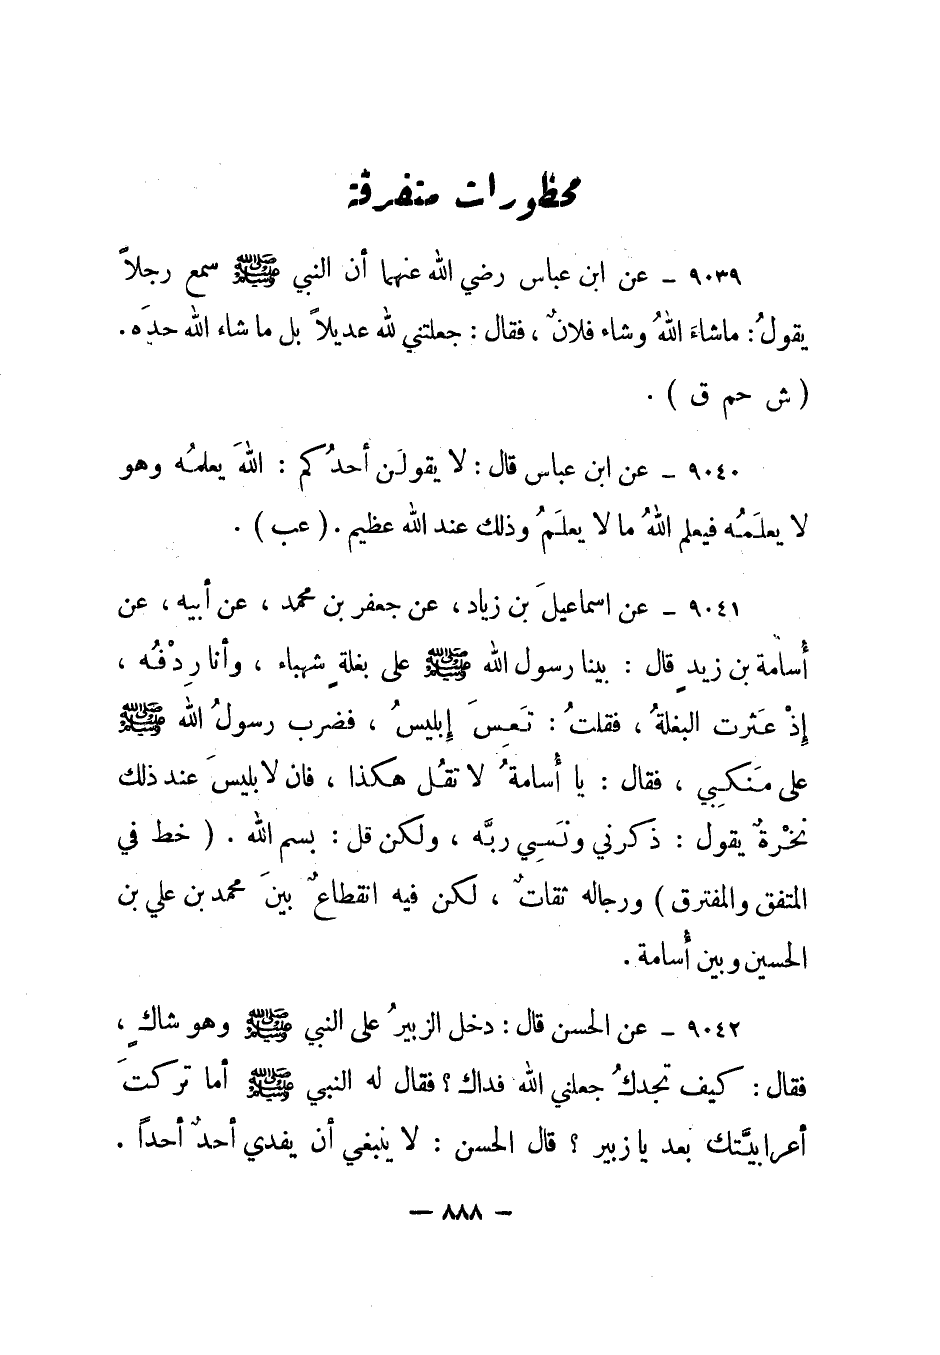 محظورات متفرقة
٩٠٣٩ ـ عن ابن عباس رضي الله عنهما أن النبي ﷺ سمع رجلاً
يقولُ : ماشاءَ اللهُ وشاء فلانٌ ، فقال : جعلتني لله عديلاً بل ما شاء الله حدَه .
( ش حم ق ) .
٩٠٤٠ ـ عن ابن عباس قال : لا يقولَن أحدُكم : اللهَ يعلمُه وهو
لا يعلَمُه فيعلم اللهُ ما لا يعلَمُ وذلك عند الله عظيم . ( عب ) .
٩٠٤١ ـ عن اسماعيلَ بن زياد ، عن جعفر بن محمد ، عن أبيه ، عن
أُسامة بن زيدٍ قال : بينا رسول الله ﷺ على بغلةٍ شهباء ، وأنا رِدْفُه ،
إِذْ عَثرت البغلةُ ، فقلتُ : تَعِسَ إِبليسُ ، فضرب رسولُ الله ﷺ
على مَنكِبي ، فقال : يا أُسامةُ لا تقُل هكذا ، فان لابليسَ عند ذلك
نخْرةٌ يقول : ذكرني ونَسِي ربَّه ، ولكن قل : بسم الله . ( خط في
المتفق والمفترق ) ورجاله ثقاتٌ ، لكن فيه انقطاعٌ بينَ محمد بن علي بن
الحسين وبين أُسامة .
٩٠٤٢ ـ عن الحسن قال : دخل الزبيرُ على النبي ﷺ وهو شاكٍ ،
فقال : كيف تجدكُ جعلني الله فداك ؟ فقال له النبي ﷺ أما تركتَ
أعرابيَّتك بعد يا زبير ؟ قال الحسن : لا ينبغي أن يفدي أحدٌ أحداً .
— ٨٨٨ —